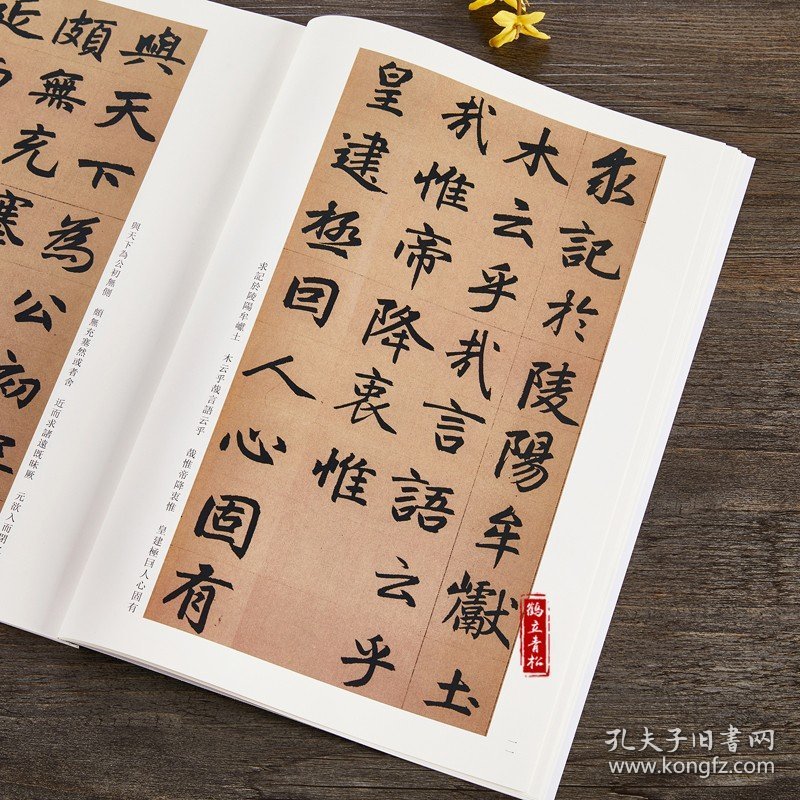 求記於陵陽牟巘土
木云乎哉言語云乎
哉惟帝降衷惟
皇建極曰人心固有
求記於陵陽牟巘土 木云乎哉言語云乎 哉惟帝降衷惟 皇建極曰人心固有
與天下為公初
頗無充塞
近而
與天下為公初無側 頗無充塞然或者舍 近而求諸遠既昧厥 元欲入而閉
鹤立青松
孔夫子旧书网
www.kongfz.com